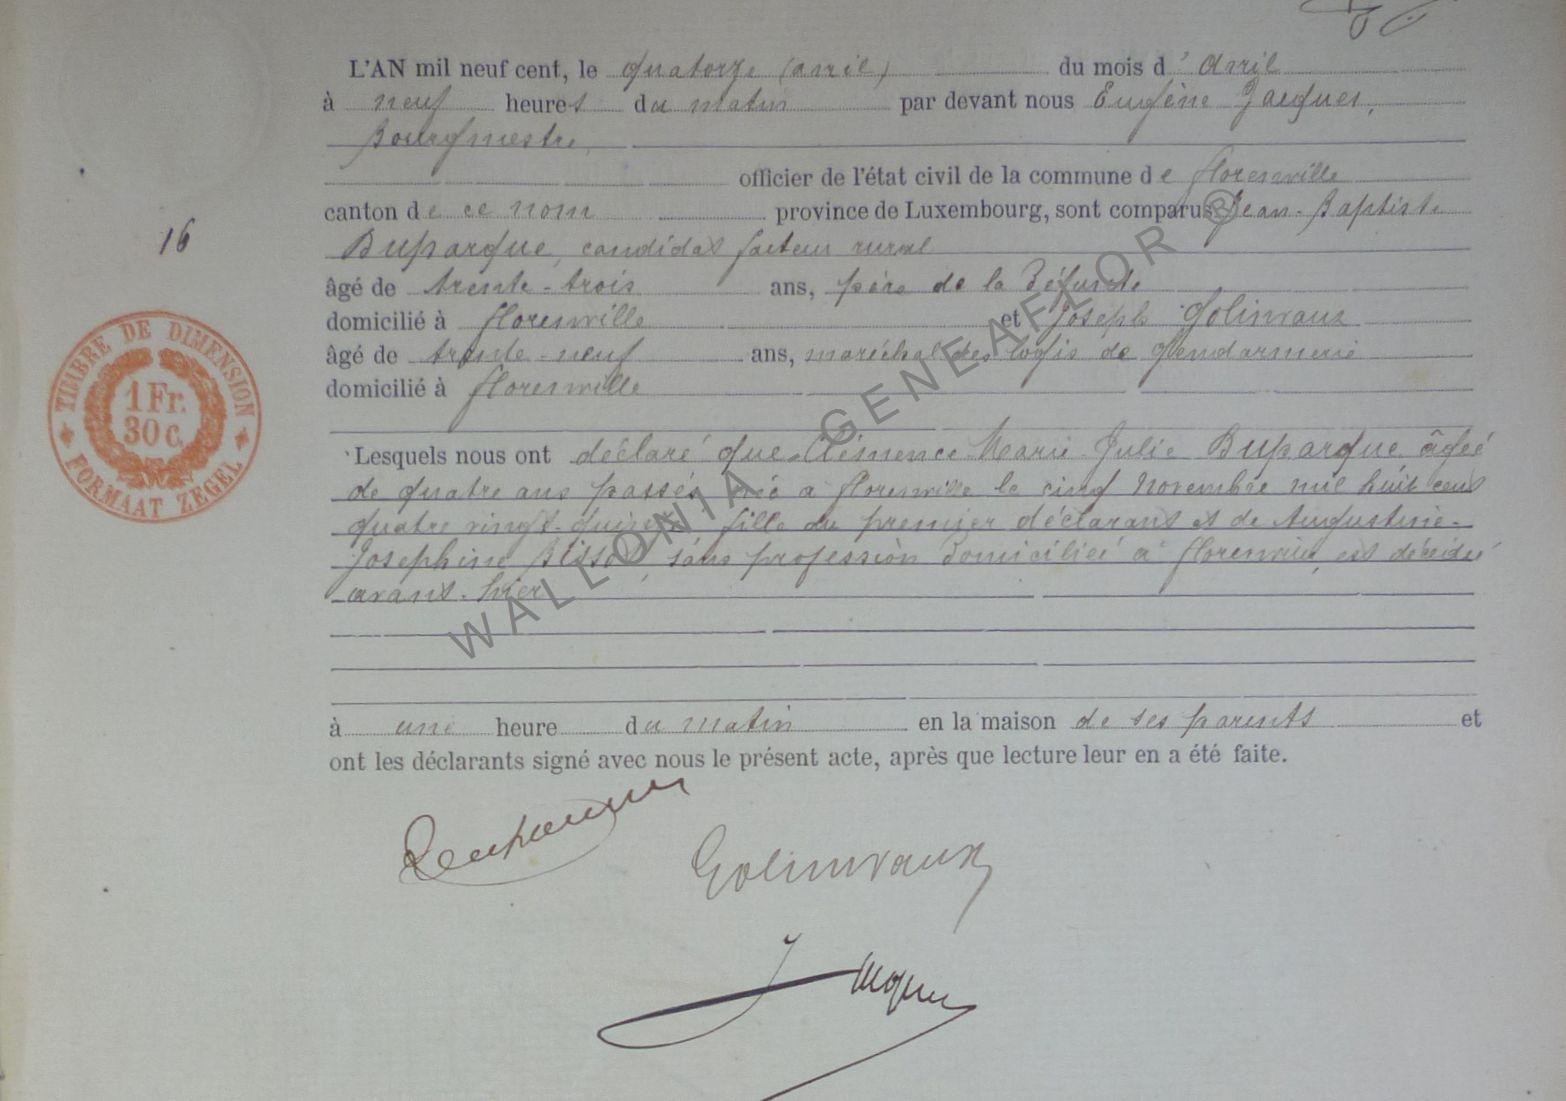 L'AN mil neuf cent, le quatorze (avril) du mois d'Avril
à neuf heures du matin par devant nous Eugène Jacques,
Bourgmestre,
officier de l'état civil de la commune de Florenville
canton de ce nom province de Luxembourg, sont comparus Jean-Baptiste
16
Duparque, candidat facteur rural
âgé de trente-trois ans, père de la Défunte
domicilié à Florenville et Joseph Golinvaux
âgé de trente-neuf ans, maréchal des logis de Gendarmerie
domicilié à Florenville
TIMBRE DE DIMENSION
1 Fr.
30 C.
FORMAAT ZEGEL
Lesquels nous ont déclaré que Clémence Marie Julie Duparque âgée
de quatre ans passés née à Florenville le cinq Novembre mil huit cent
quatre vingt-quinze fille du premier déclarant et de Augustine-
Josephine Bisson, sans profession domiciliée à Florenville, est décédée
avant-hier
à une heure du matin en la maison de ses parents et
ont les déclarants signé avec nous le présent acte, après que lecture leur en a été faite.
Golinvaux
Jacques
WALLONIA GENEAFLOR ®